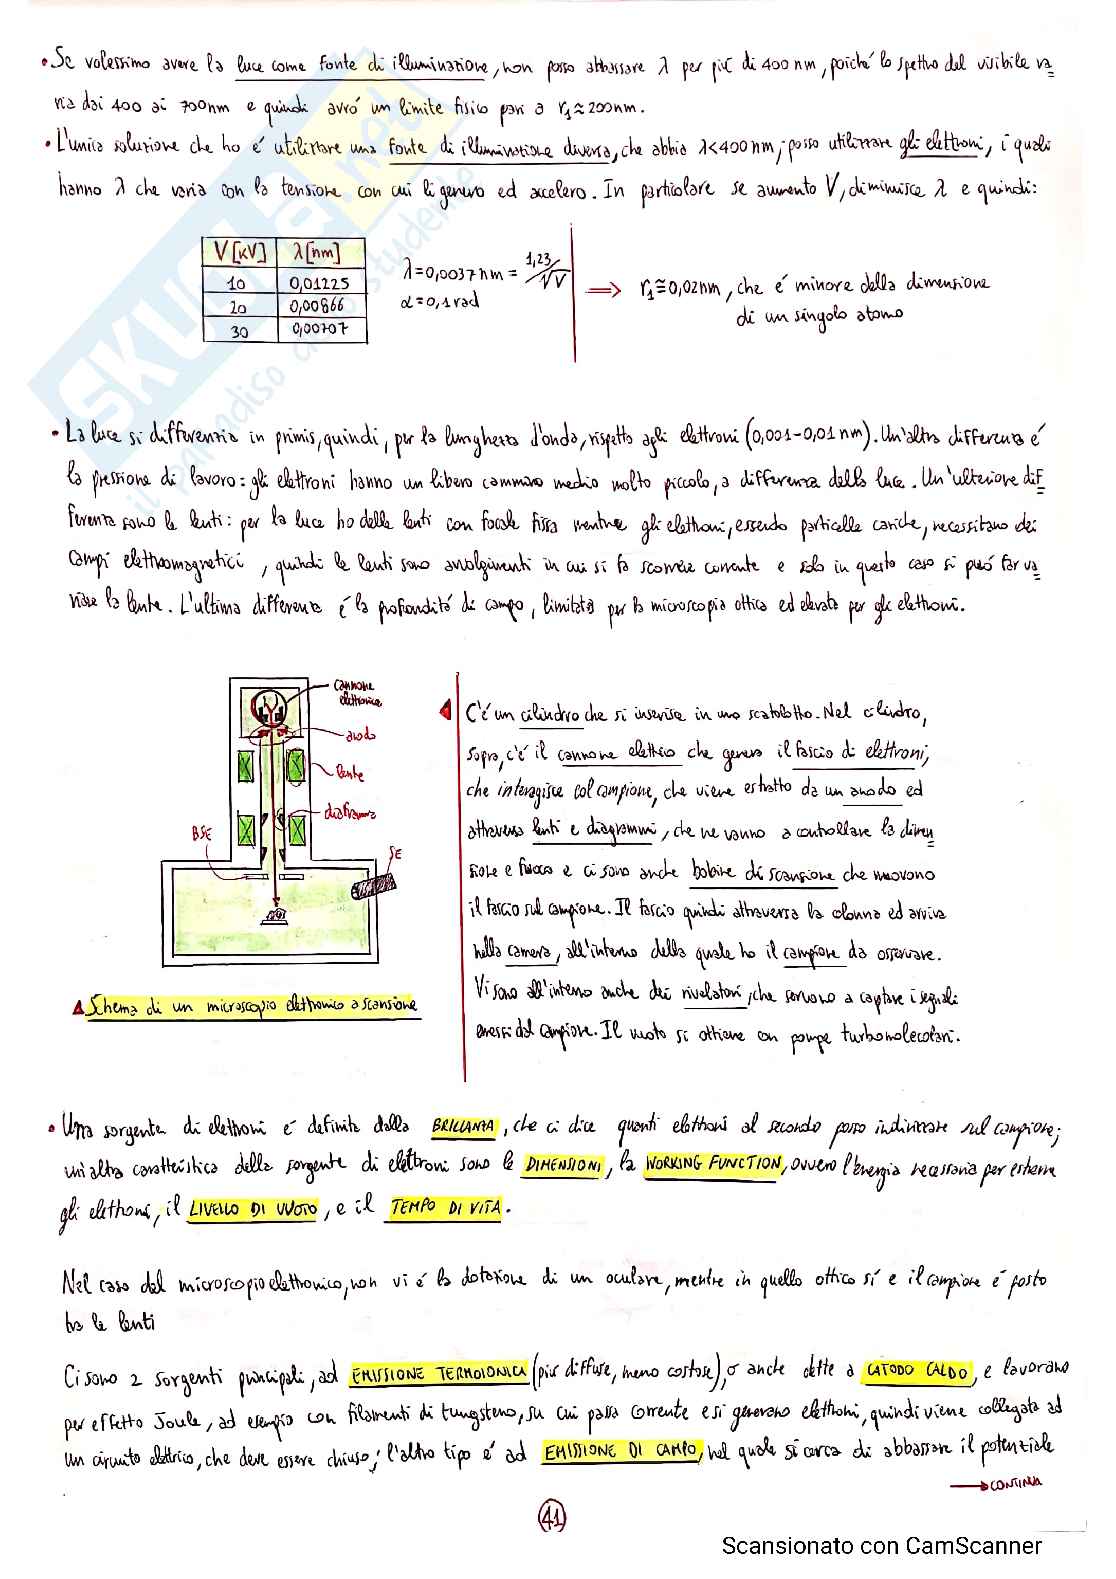 • Se volessimo avere la luce come fonte di illuminazione, non posso abbassare λ per più di 400 nm, poiché lo spettro del visibile va
ria dai 400 ai 700nm e quindi avrò un limite fisico pari a r₁≈200nm.
• L'unica soluzione che ho é utilizzare una fonte di illuminazione diversa, che abbia λ<400nm; posso utilizzare gli elettroni, i quali
hanno λ che varia con la tensione con cui li genero ed accelero. In particolare se aumento V, diminuisce λ e quindi:
V[kV] λ[nm]
10 0,01225
20 0,00866
30 0,00707
λ=0,0037nm = 1,23/√V
α=0,1rad
⟹ r₁≅0,02nm, che é minore della dimensione
di un singolo atomo
• La luce si differenzia in primis, quindi, per la lunghezza d'onda, rispetto agli elettroni (0,001-0,01nm). Un'altra differenza é
la pressione di lavoro: gli elettroni hanno un libero cammino medio molto piccolo, a differenza della luce. Un'ulteriore dif
ferenza sono le lenti: per la luce ho delle lenti con focale fissa mentre gli elettroni, essendo particelle cariche, necessitano dei
campi elettromagnetici, quindi le lenti sono avvolgimenti in cui si fa scorrere corrente e solo in questo caso si può far va
riare la lente. L'ultima differenza é la profondità di campo, limitata per la microscopia ottica ed elevata per gli elettroni.
cannone
elettronico
anodo
lente
diaframma
BSE
SE
Schema di un microscopio elettronico a scansione
C'é un cilindro che si inserisce in uno scatolotto. Nel cilindro,
sopra, c'é il cannone elettrico che genera il fascio di elettroni,
che interagisce col campione, che viene estratto da un anodo ed
attraversa lenti e diagrammi, che ne vanno a controllare la dimen
sione e fuoco e ci sono anche bobine di scansione che muovono
il fascio sul campione. Il fascio quindi attraversa la colonna ed arriva
nella camera, all'interno della quale ho il campione da osservare.
Vi sono all'interno anche dei rivelatori, che servono a captare i segnali
emessi dal campione. Il vuoto si ottiene con pompe turbomolecolari.
• Una sorgente di elettroni é definita dalla BRILLANZA, che ci dice quanti elettroni al secondo posso indirizzare sul campione;
un'altra caratteristica della sorgente di elettroni sono le DIMENSIONI, la WORKING FUNCTION, ovvero l'energia necessaria per estrarre
gli elettroni, il LIVELLO DI VUOTO, e il TEMPO DI VITA.
Nel caso del microscopio elettronico, non vi é la dotazione di un oculare, mentre in quello ottico sí e il campione é posto
tra le lenti
Ci sono 2 sorgenti principali, ad EMISSIONE TERMOIONICA (più diffuse, meno costose), o anche dette a CATODO CALDO, e lavorano
per effetto Joule, ad esempio con filamenti di tungsteno, su cui passa corrente e si generano elettroni, quindi viene collegata ad
un circuito elettrico, che deve essere chiuso; l'altro tipo é ad EMISSIONE DI CAMPO, nel quale si cerca di abbassare il potenziale
→ CONTINUA
41
Scansionato con CamScanner
SKUOLA.net
il paradiso dello studente